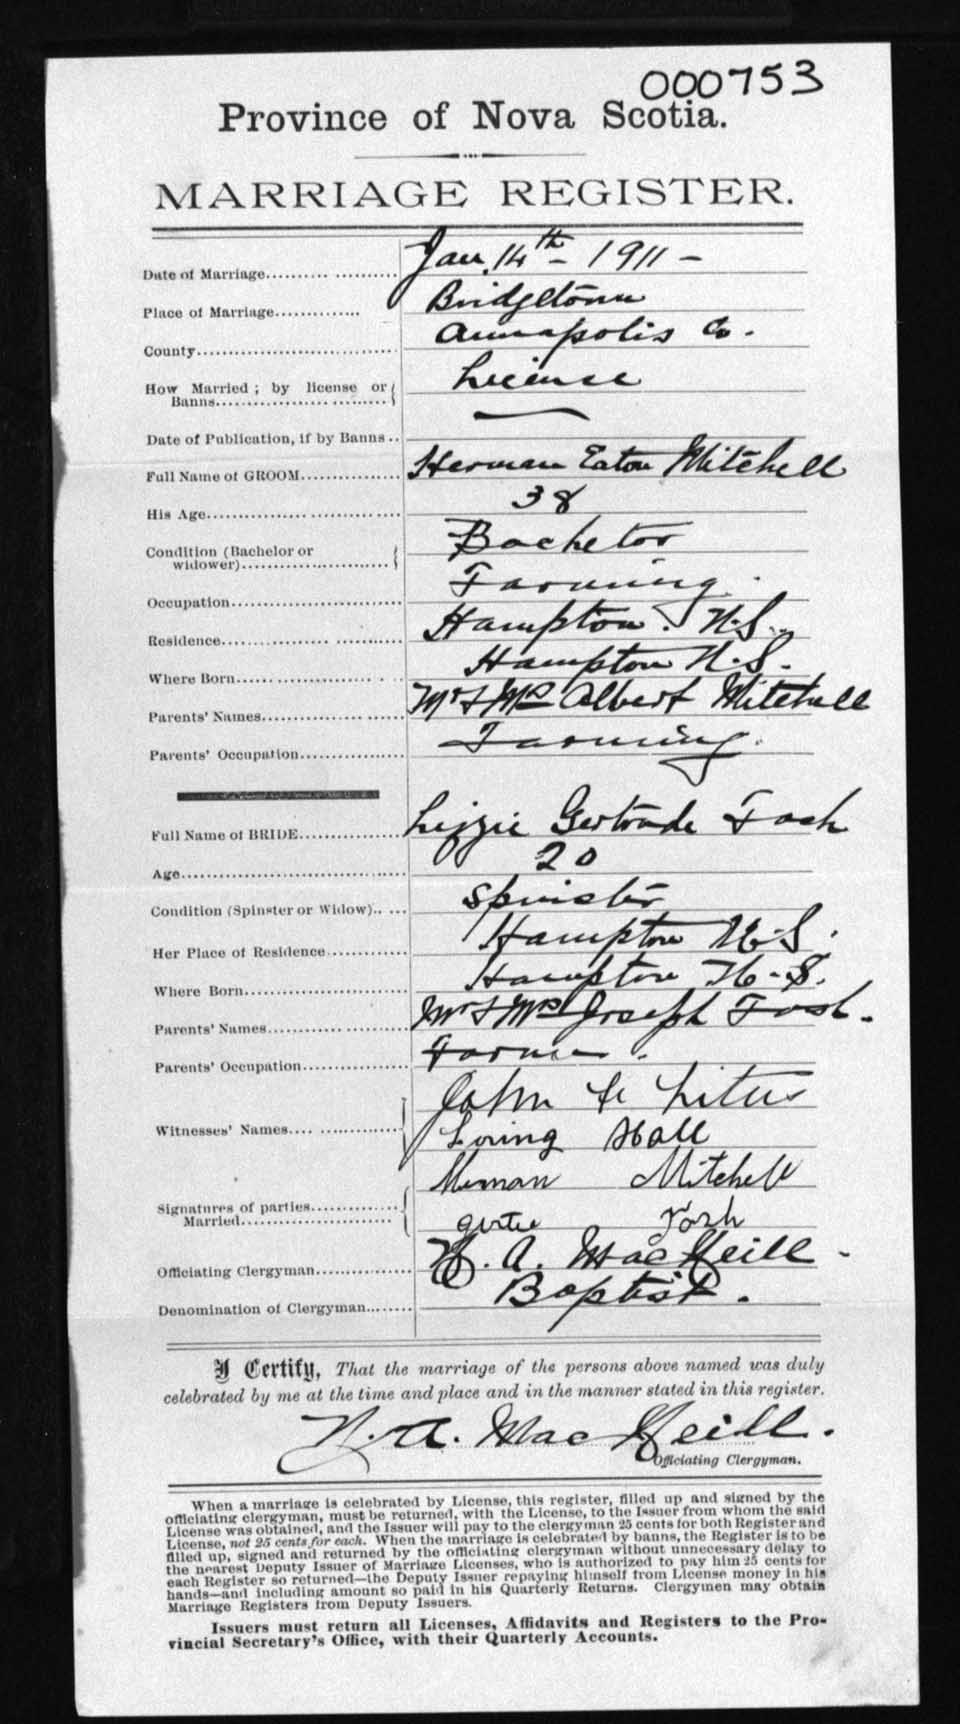 000753
Province of Nova Scotia.
MARRIAGE REGISTER.
Date of Marriage.......... .............. Jan. 14th - 1911 -
Place of Marriage............. Bridgetown
County................................ Annapolis Co.
How Married ; by license or License
Banns................................
Date of Publication, if by Banns ..
Full Name of GROOM................ Herman Eaton Mitchell
His Age................................ 38
Condition (Bachelor or Bachelor
widower)...........................
Occupation........................... Farming.
Residence............................ Hampton. N.S.
Where Born........................... Hampton N.S.
Parents' Names...................... Mr & Mrs Albert Mitchell
Parents' Occupation................ Farming.
Full Name of BRIDE................. Lizzie Gertrude Fosh
Age.................................... 20
Condition (Spinster or Widow).. ... Spinster
Her Place of Residence............. Hampton N.S.
Where Born........................... Hampton N.S.
Parents' Names...................... Mr & Mrs Joseph Fosh.
Parents' Occupation................ Farmer.
John
Witnesses' Names................... Loring Hall
Herman Mitchell
Signatures of parties..............
Married............................. Gertie Fosh
Officiating Clergyman.............. N. A. MacNeill -
Denomination of Clergyman........ Baptist.
I Certify, That the marriage of the persons above named was duly
celebrated by me at the time and place and in the manner stated in this register.
N. A. MacNeill.
Officiating Clergyman.
When a marriage is celebrated by License, this register, filled up and signed by the
officiating clergyman, must be returned, with the License, to the Issuer from whom the said
License was obtained, and the Issuer will pay to the clergyman 25 cents for both Register and
License, not 25 cents for each. When the marriage is celebrated by banns, the Register is to be
filled up, signed and returned by the officiating clergyman without unnecessary delay to
the nearest Deputy Issuer of Marriage Licenses, who is authorized to pay him 25 cents for
each Register so returned—the Deputy Issuer repaying himself from License money in his
hands—and including amount so paid in his Quarterly Returns. Clergymen may obtain
Marriage Registers from Deputy Issuers.
Issuers must return all Licenses, Affidavits and Registers to the Pro-
vincial Secretary's Office, with their Quarterly Accounts.